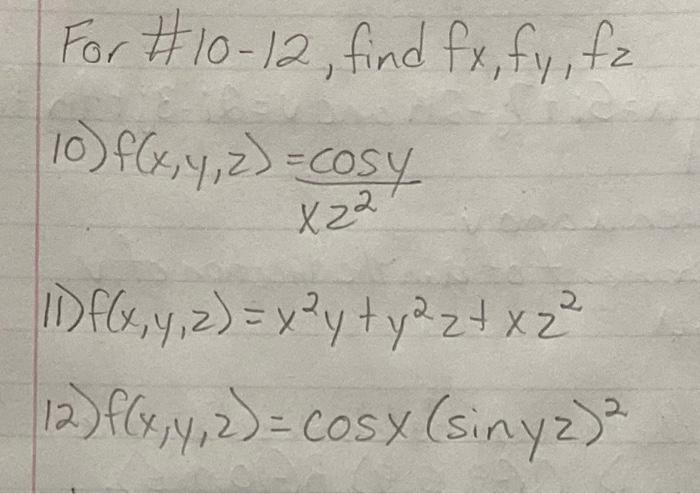 For #10-12, find fx, fy, fz
10) f(x,y,z) = cosy
xz²
11) f(x,y,z) = x²y + y²z + xz²
12) f(x,y,z) = cosx (sinyz)²